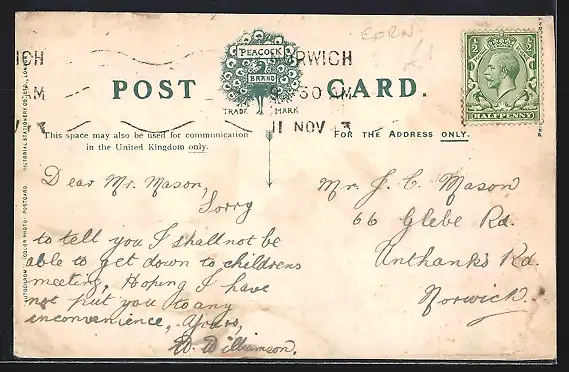 CORN
£1
PEACOCK
BRAND
TRADE MARK
POST CARD.
NORWICH
9 30 AM
11 NOV 13
½ ½
HALFPENNY
This space may also be used for communication
in the United Kingdom only.
FOR THE ADDRESS ONLY.
Dear Mr. Mason,
Sorry
to tell you I shall not be
able to get down to childrens
meeting, Hoping I have
not put you to any
inconvenience, Yours,
W. Williamson.
Mr J. C. Mason
66 Glebe Rd.
Unthank's Rd.
Norwich.